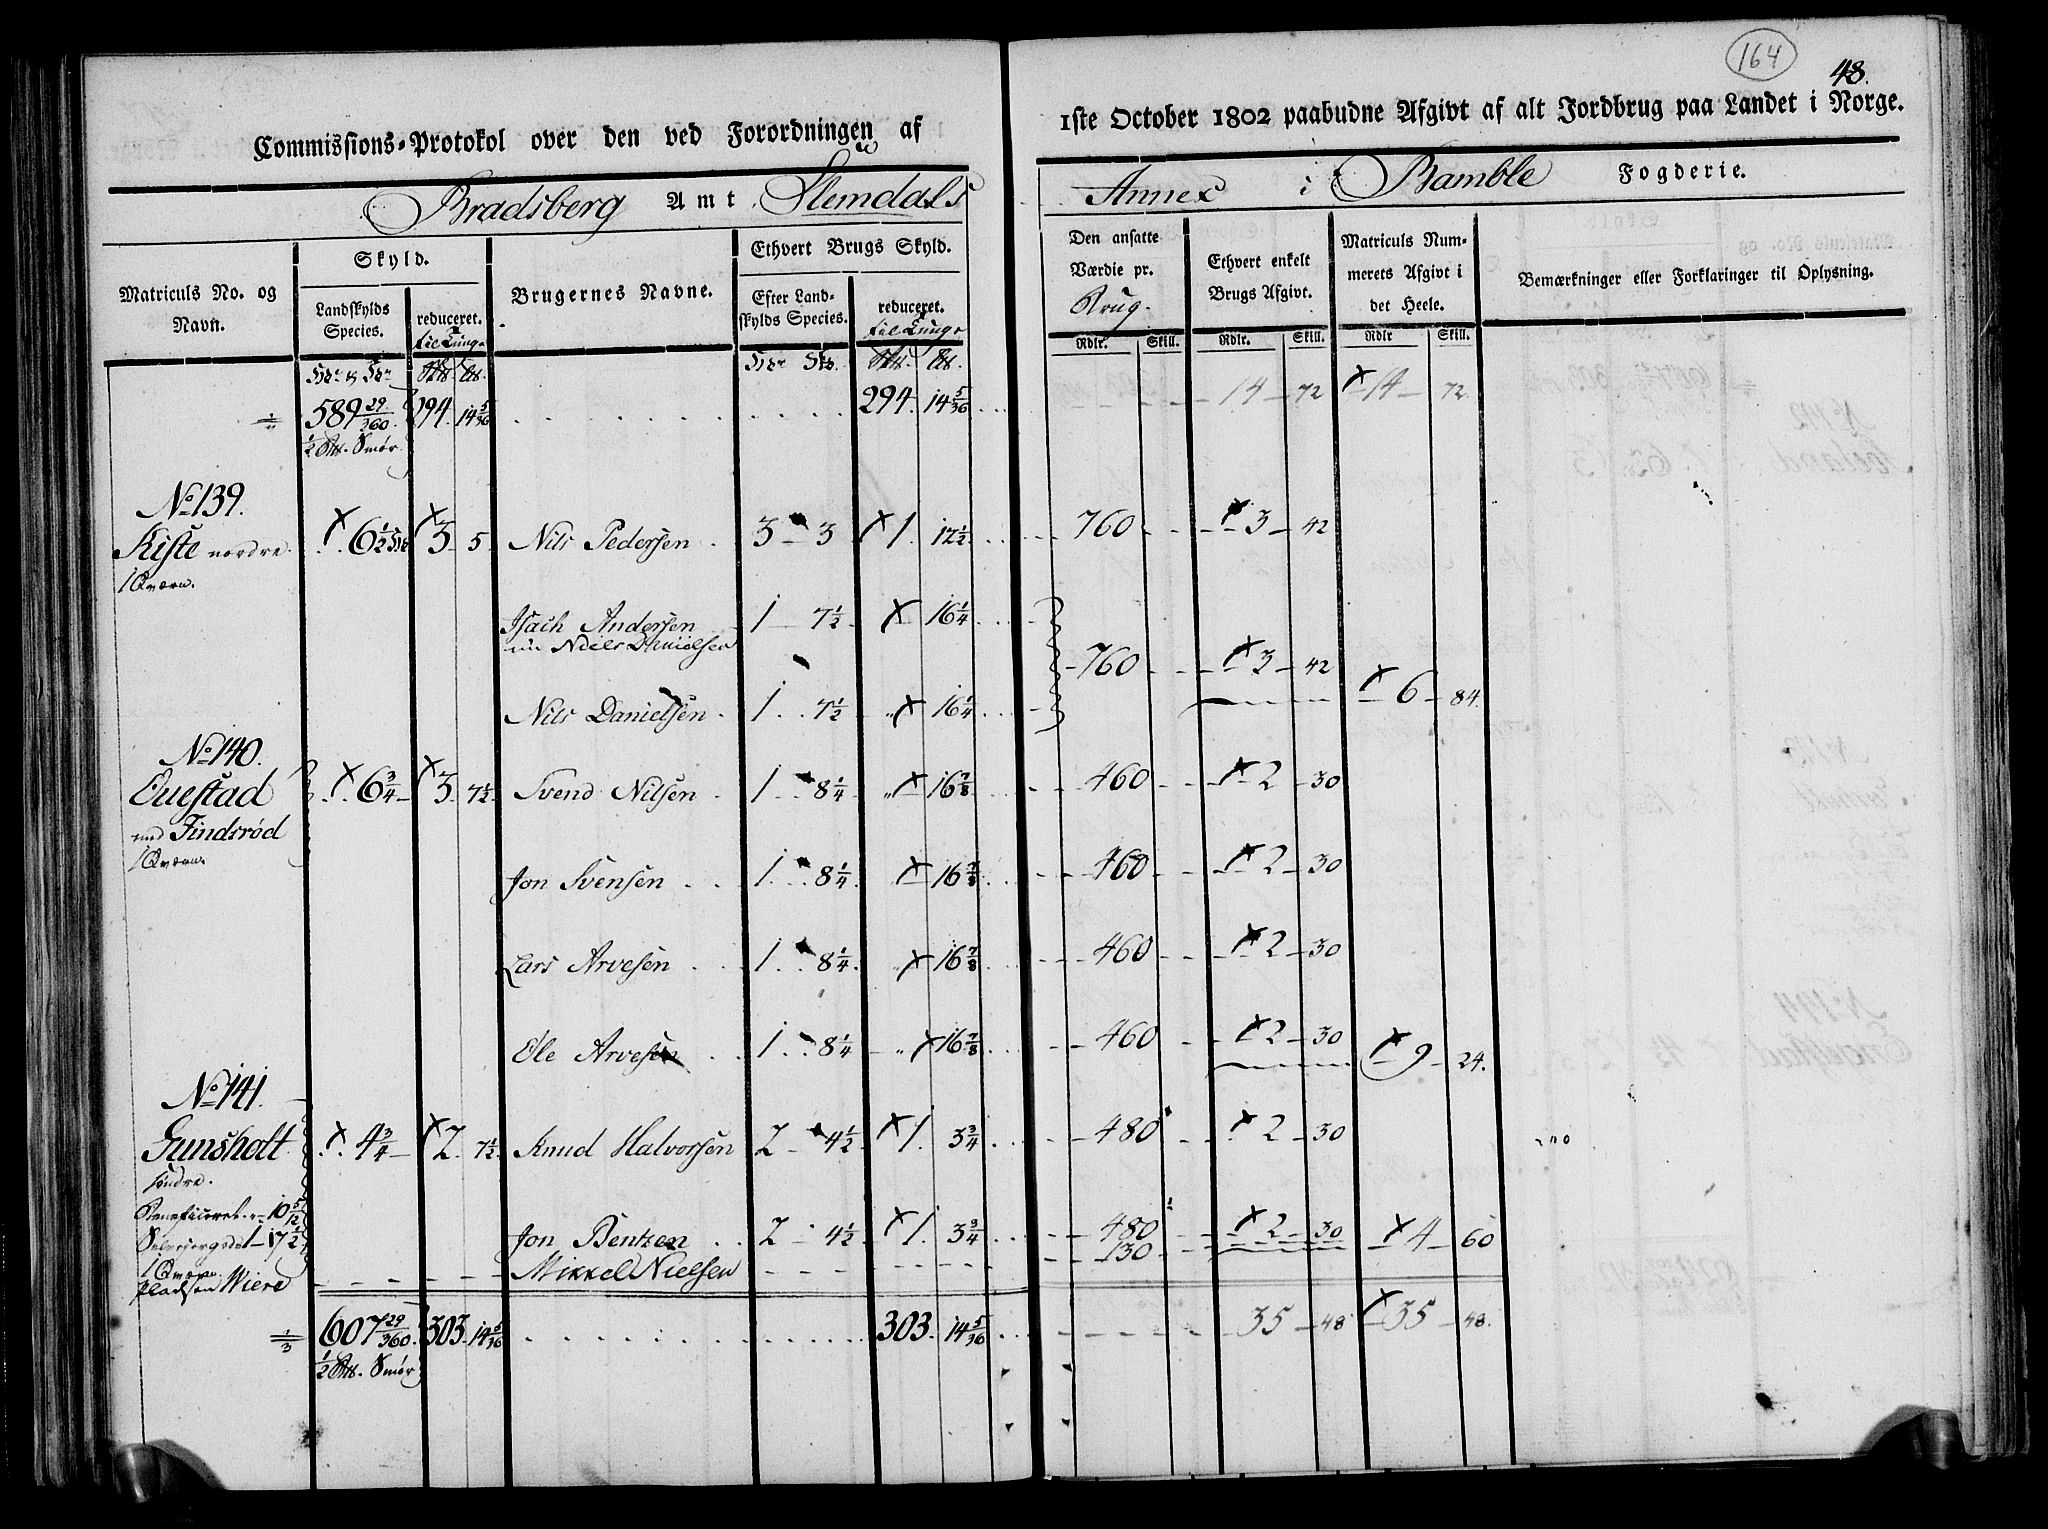 164
48.
Commissions-Protokol over den ved Forordningen af 1ste October 1802 paabudne Afgivt af alt Jordbrug paa Landet i Norge.
Bradsberg Amt Slemdals Annex i Bamble Fogderie.
Matriculs No. og Navn.
Skyld.
Landskylds Species.
reduceret.
til Tunge
Brugernes Navne.
Ethvert Brugs Skyld.
Efter Landskylds Species.
reduceret.
til Tunge
Den ansatte Værdie pr. Brug.
Rdlr. Skill.
Ethvert enkelt Brugs Afgivt.
Rdlr. Skill.
Matriculs Nummerets Afgivt i det Heele.
Rdlr Skill.
Bemærkninger eller Forklaringer til Oplysning.
589 29/360. 294. 14 5/36 294. 14 5/36 14 72 14 72
1/2 Smør
No 139.
Kiste nordre 6 1/2 3 5 Nils Pedersen 3 3 1. 12 1/2 760 3 42
1 Qværn.
Isach Andersen 1 7 1/2 16 1/4
Niels Danielsen
760 3 42
Nils Danielsen 1 7 1/2 16 1/4 6 84.
No 140.
Ouestad 6 3/4 3 7 1/2 Svend Nilsen 1 8 1/4 16 7/8 460 2 30
med Findsrød
1 Qværn.
Jon Svensen 1 8 1/4 16 7/8 460 2 30
Lars Arvesen 1 8 1/4 16 7/8 460 2 30
Ole Arvesen 1 8 1/4 16 7/8 460 2 30 9 24.
No 141.
Gunsholt 4 3/4 2 7 1/2 Knud Halvorsen 2 4 1/2 1. 3 3/4 480 2 30
søndre.
Beneficeret 10 5/12
1 17 1/2
Jon Bentzen 2 4 1/2 1. 3 3/4 480 2 30 4 60
1 Qværn
Pladsen Wiere Mikkel Nielsen 130
607 29/360. 303. 14 5/36 303. 14 5/36 35 48 35 48.
1/2 Smør